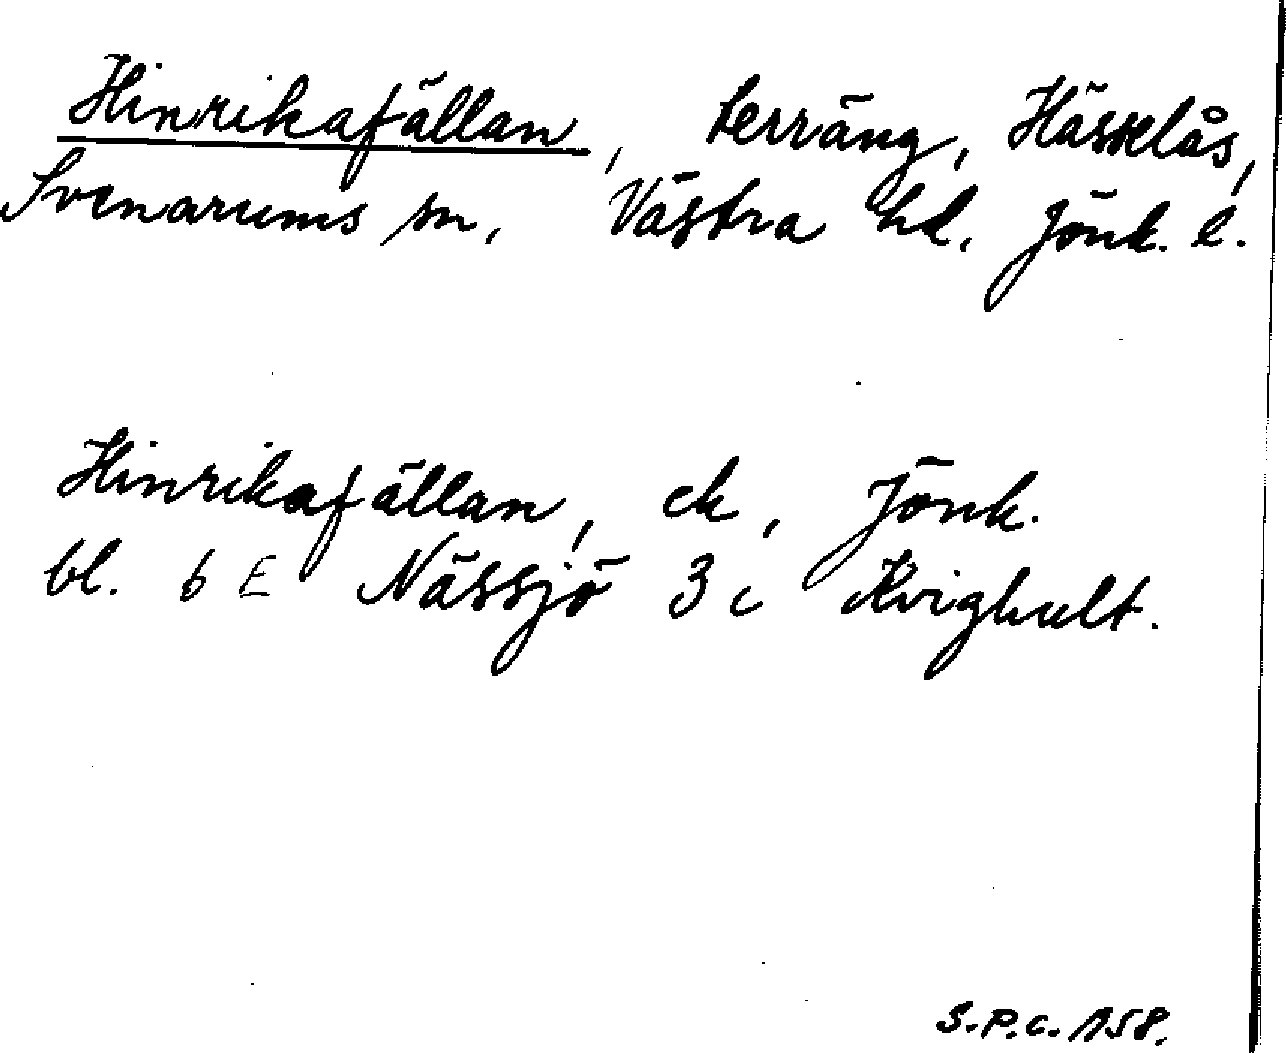 Hinrikafällan, terräng, Hässelås,
Svenarums sn, Västra hd. Jönk. l.
Hinrikafällan, ek, Jönk.
bl. 6 E Nässjö 3 c Kvighult.
S.P.C. 1958.